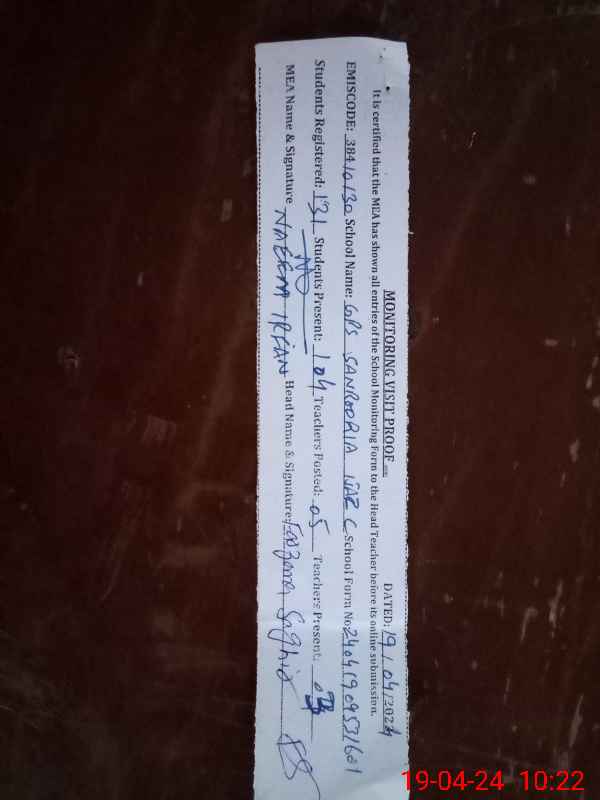 MONITORING VISIT PROOF
DATED: 19/04/2024
It is certified that the MEA has shown all entries of the School Monitoring Form to the Head Teacher before its online submission.
EMISCODE: 38410130 School Name: GPS School Form No 24041909531601
Students Registered: 131 Students Present: 104 Teachers Posted: 05 Teachers Present:
MEA Name & Signature NAEEM IRFAN Head Name & Signature:
19-04-24 10:22